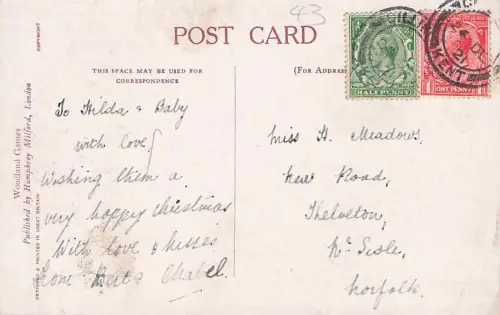 43
POST CARD
THIS SPACE MAY BE USED FOR
CORRESPONDENCE
(FOR ADDRES
HALF PENNY
ONE PENNY
DE
21
KENT
COPYRIGHT
Woodland Games
Published by Humphrey Milford, London
DESIGNED & PRINTED IN GREAT BRITAIN
To Hilda & Baby
with love
Wishing them a
very happy christmas
With love & kisses
from Bert & Chabel.
Miss H. Meadows,
New Road,
Thelveton,
Nr Scole,
Norfolk.